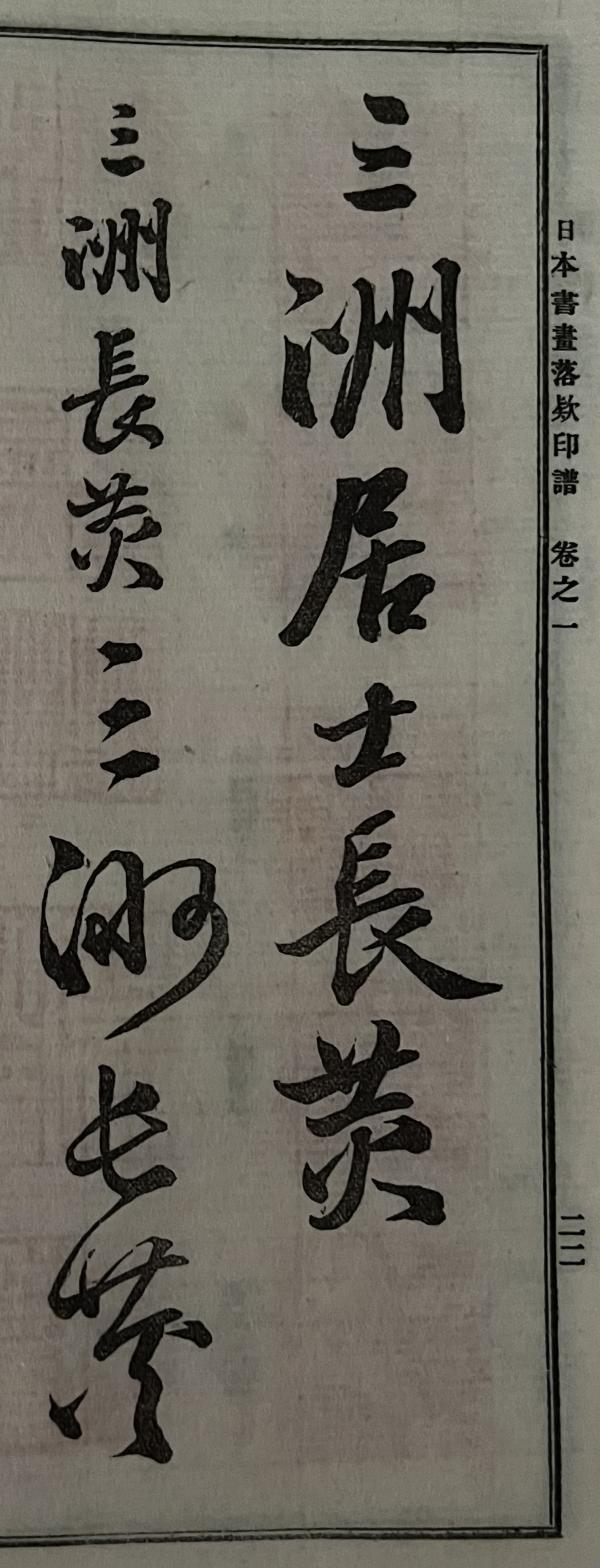 日本書畫落欵印譜 卷之一
三洲居士長炗
三洲長炗
三洲長炗